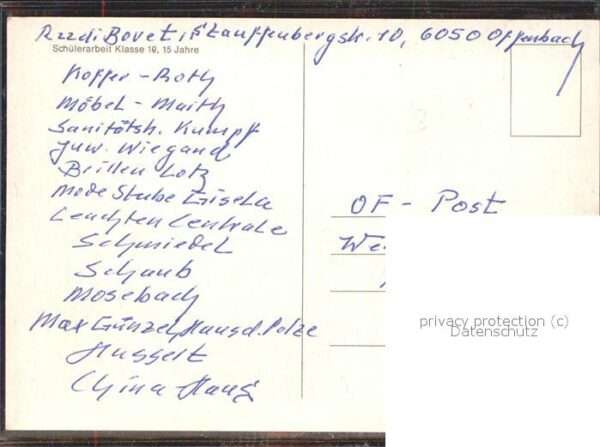 Rudi Bovet, Stauffenbergstr. 10, 6050 Offenbach
Schülerarbeit Klasse 10, 15 Jahre
Koffer - Roth
Möbel - Maith
Sanitätsh. Kumpf
Juw. Wiegand
Brillen Lotz
Mode Stube Gisela
Leuchten Centrale
Schmiedel
Schaub
Mosebach
Max Günzel, Haus d. Pelze
Hussett
China Haus
OF - Post
We
privacy protection (c)
Datenschutz